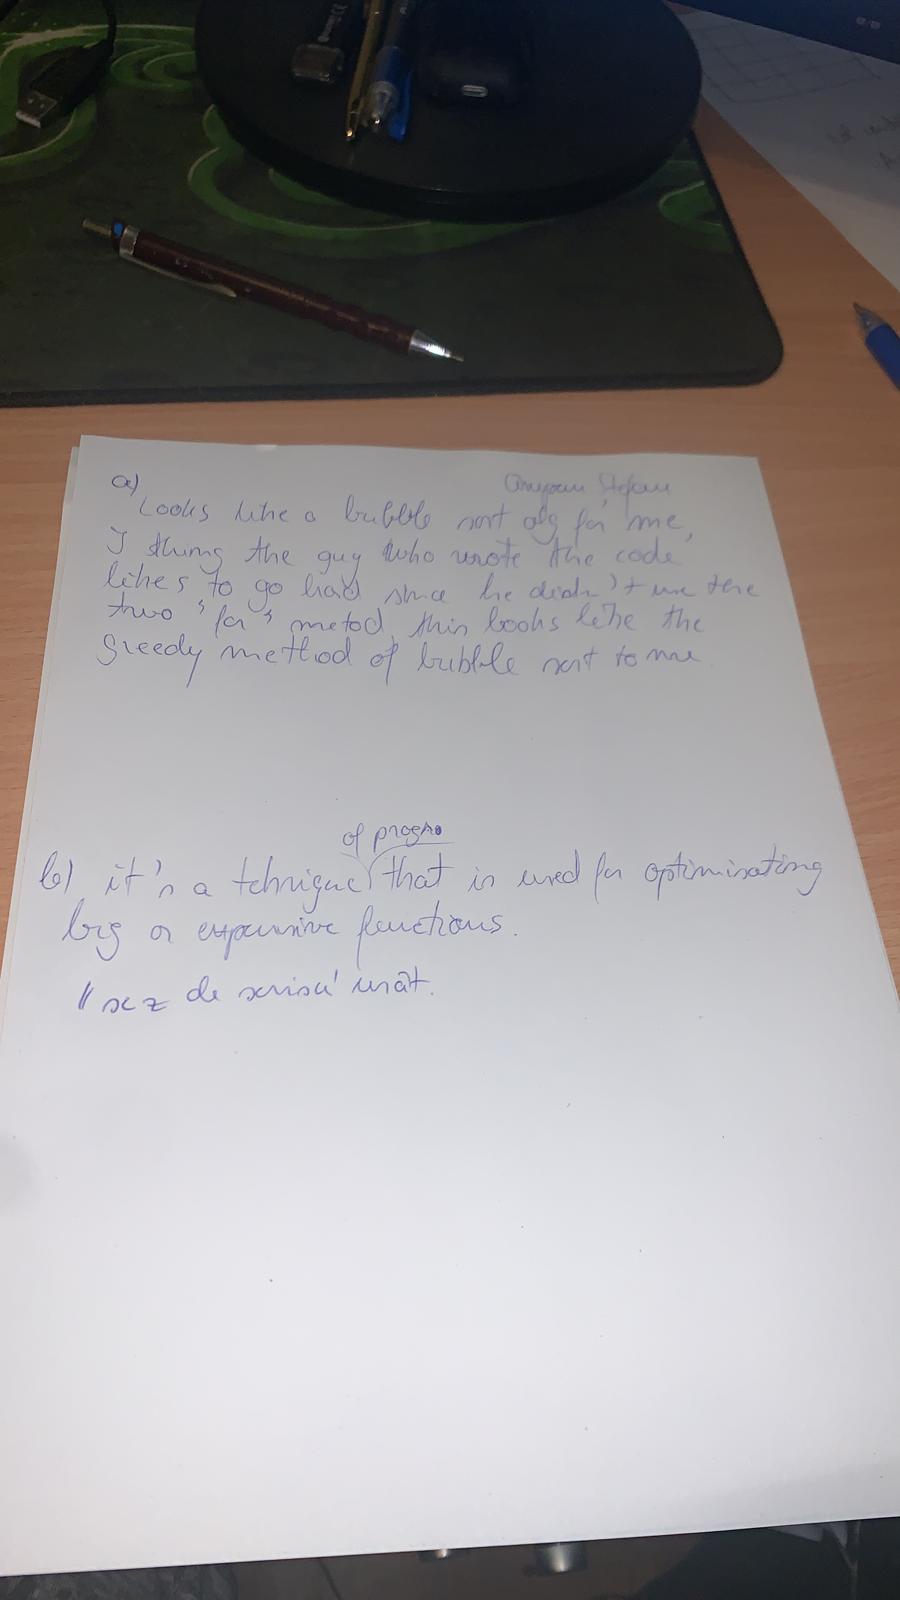 a)
Looks like a bubble sort alg for me,
I thing the guy who wrote the code,
likes to go hard since he didn't use the
two "for" metod, this looks like the
greedy method of bubble sort to me.
of progr
b) it's a tehnique that is used for optimisating
big or expensive functions.
scz de scrisu' urât.